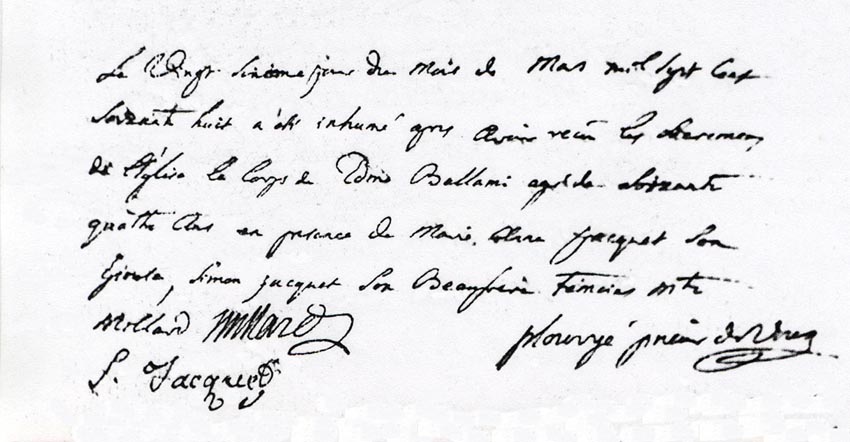 Le Vingt sixieme jour du Mois de Mars mil Sept Cent
Soixante huit a été inhumé aprés Avoir reçu les Sacremens
de l'Église Le Corps de Ballami agé de Soixante
quatre Ans en presence de Marie Jacquet Son
Simon jacquet Son Beaufrere
Millard Millard
plouvyé prieur de
S. Jacquet